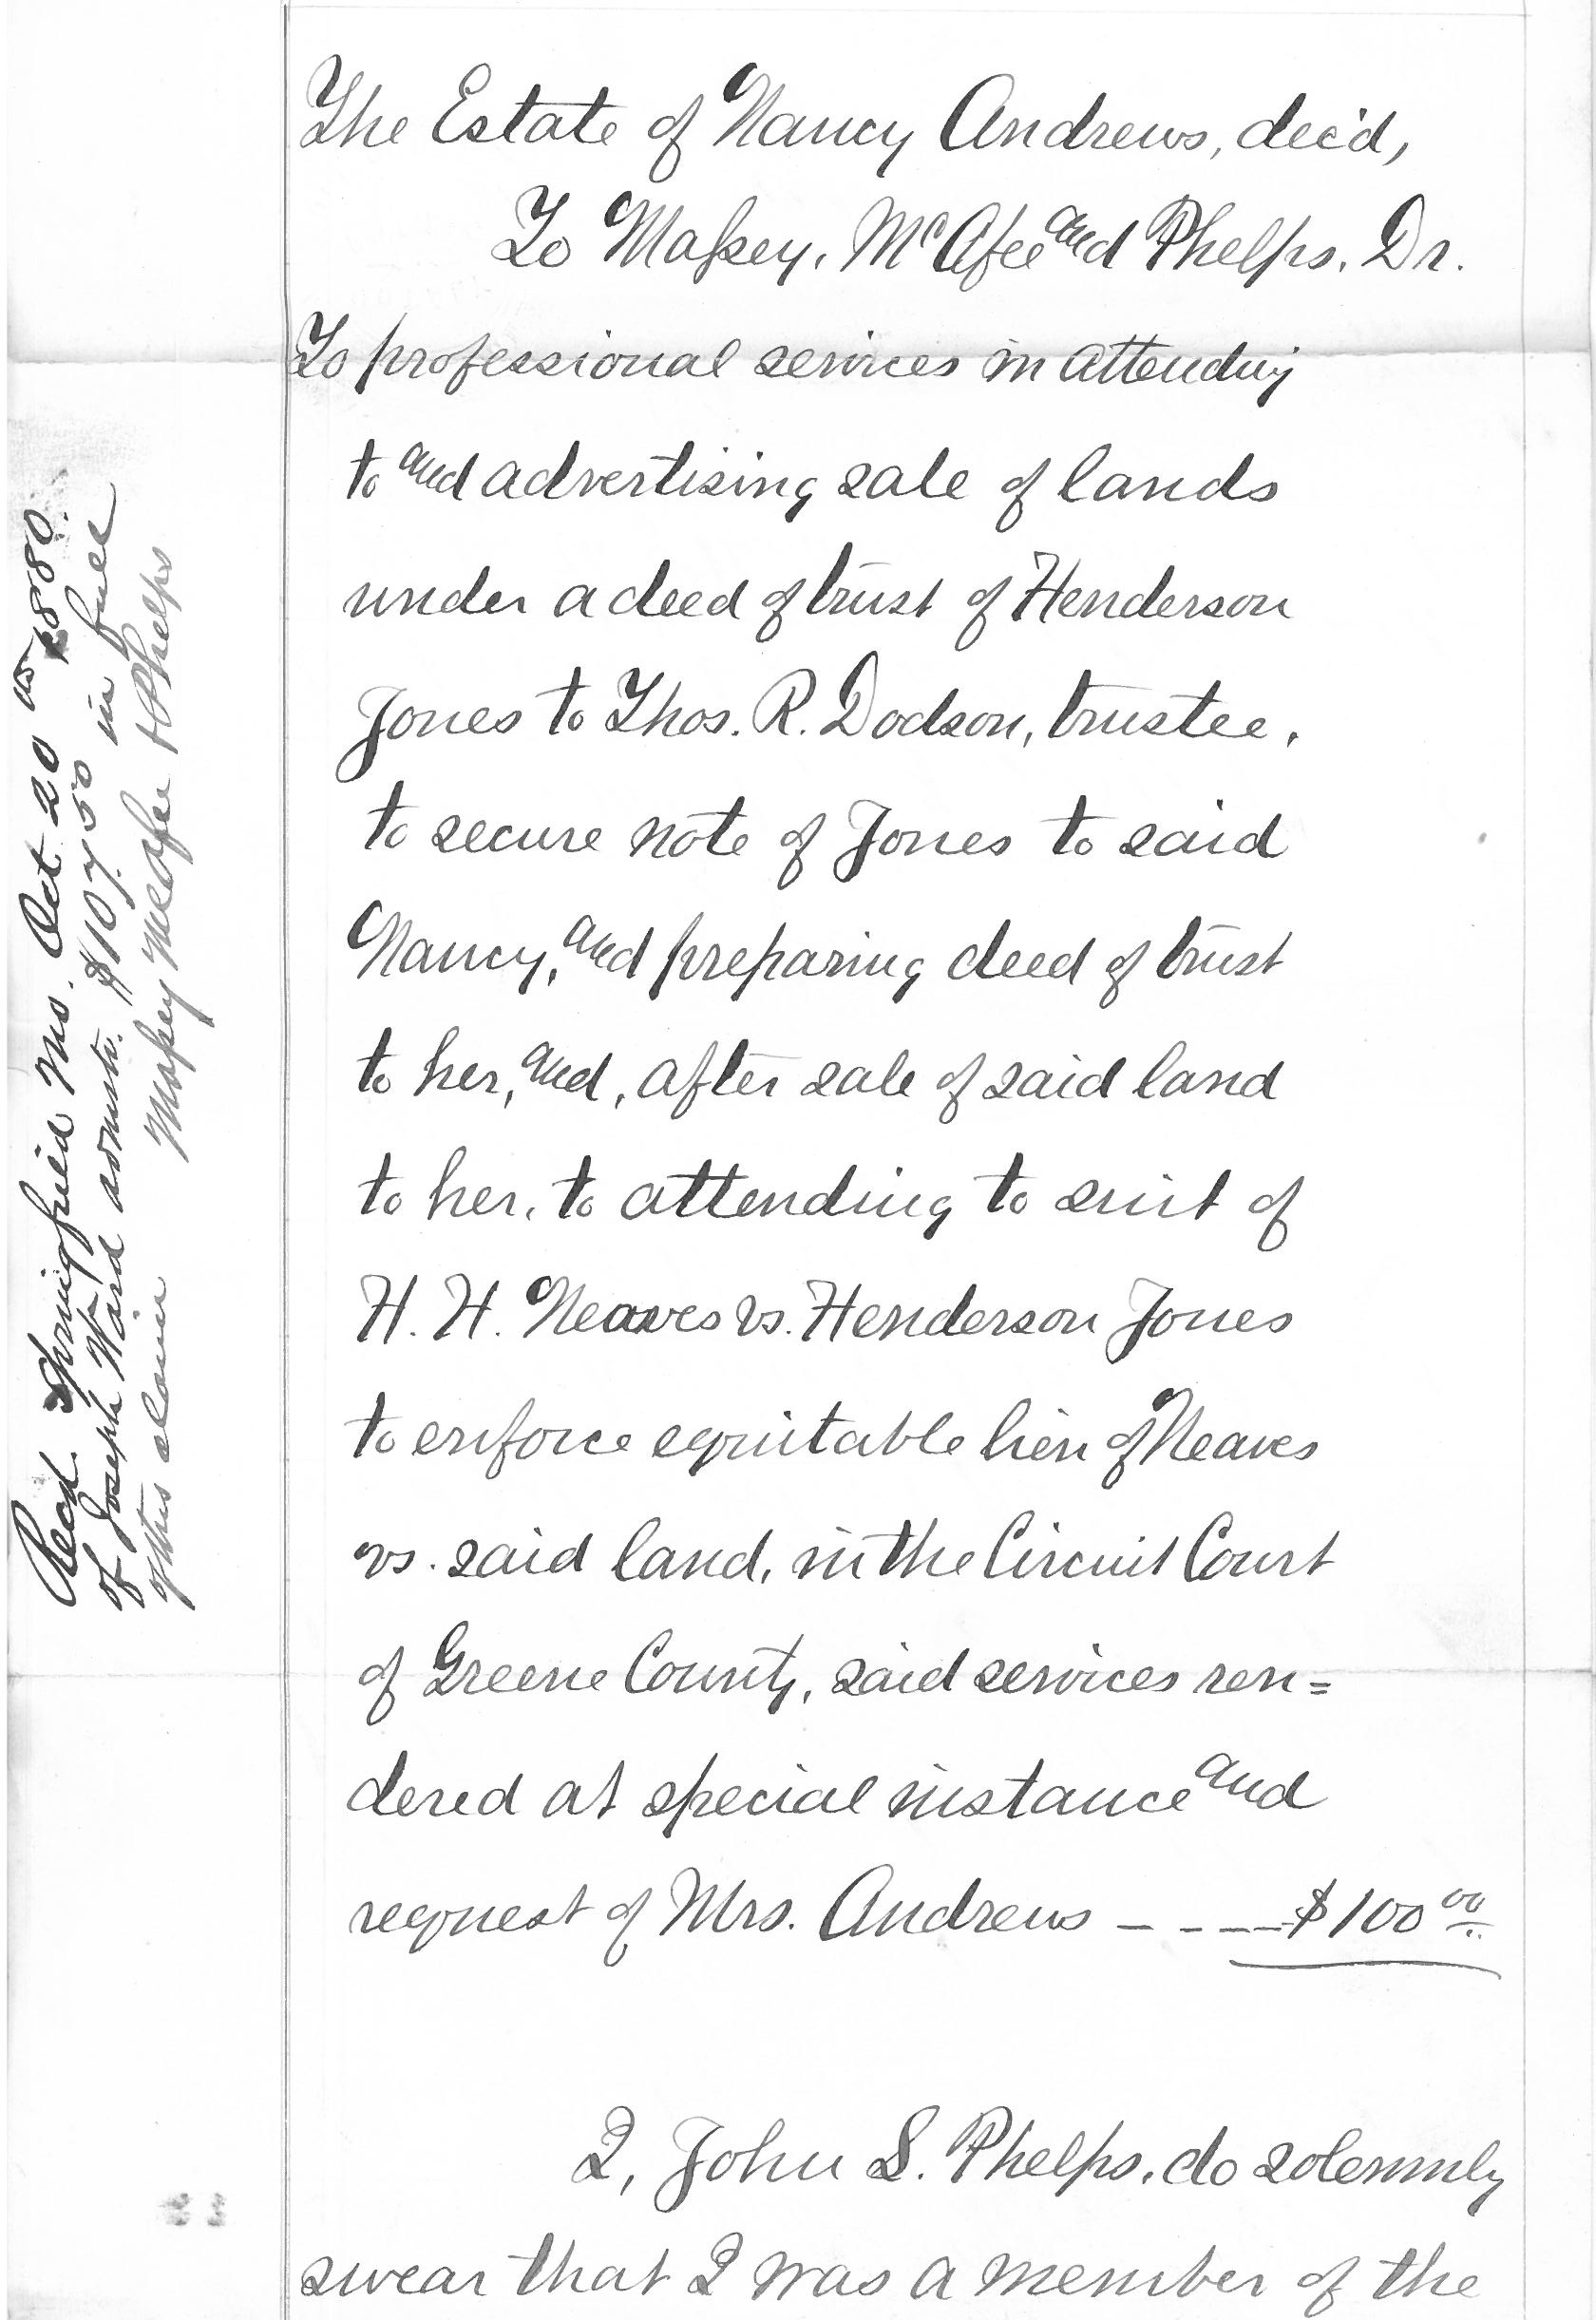 The Estate of Nancy Andrews, dec'd,
To Massey, McAfee and Phelps, Dr.
To professional services in attending
to and advertising sale of lands
under a deed of trust of Henderson
Jones to Thos. R. Dodson, trustee,
to secure note of Jones to said
Nancy, and preparing deed of trust
to her, and, after sale of said land
to her, to attending to suit of
H. H. Neaves vs. Henderson Jones
to enforce equitable lien of Neaves
vs. said land, in the Circuit Court
of Greene County, said services ren=
dered at special instance and
request of Mrs. Andrews - - - - $100 00
I, John S. Phelps, do solemnly
swear that I was a member of the
Recd. Springfield Mo. Oct 20th 1880.
of Joseph Ward admstr. $107.50 in full
of this claim Massey McAfee & Phelps